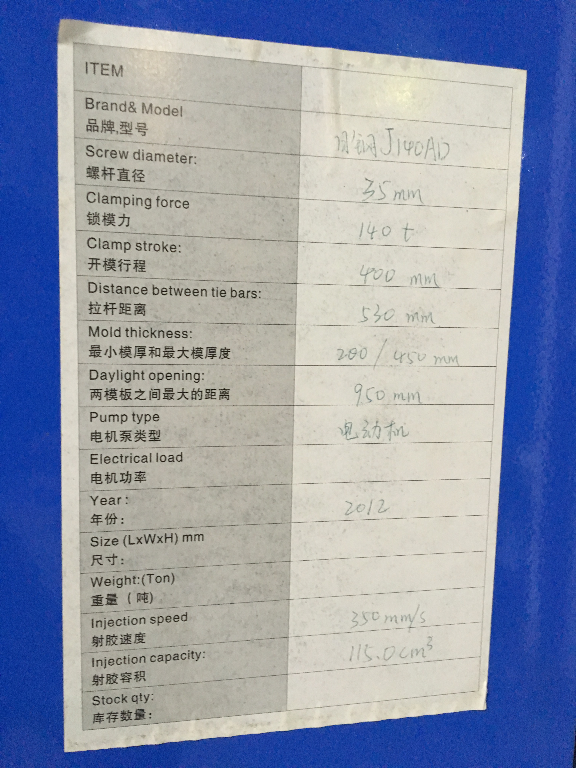 ITEM
Brand& Model
品牌,型号
日钢J140AD
Screw diameter:
螺杆直径
35mm
Clamping force
锁模力
140 t
Clamp stroke:
开模行程
400 mm
Distance between tie bars:
拉杆距离
530 mm
Mold thickness:
最小模厚和最大模厚度
200/450mm
Daylight opening:
两模板之间最大的距离
950mm
Pump type
电机泵类型
电动机
Electrical load
电机功率
Year:
年份:
2012
Size (LxWxH) mm
尺寸:
Weight:(Ton)
重量(吨)
Injection speed
射胶速度
350mm/s
Injection capacity:
射胶容积
115.0cm³
Stock qty:
库存数量: